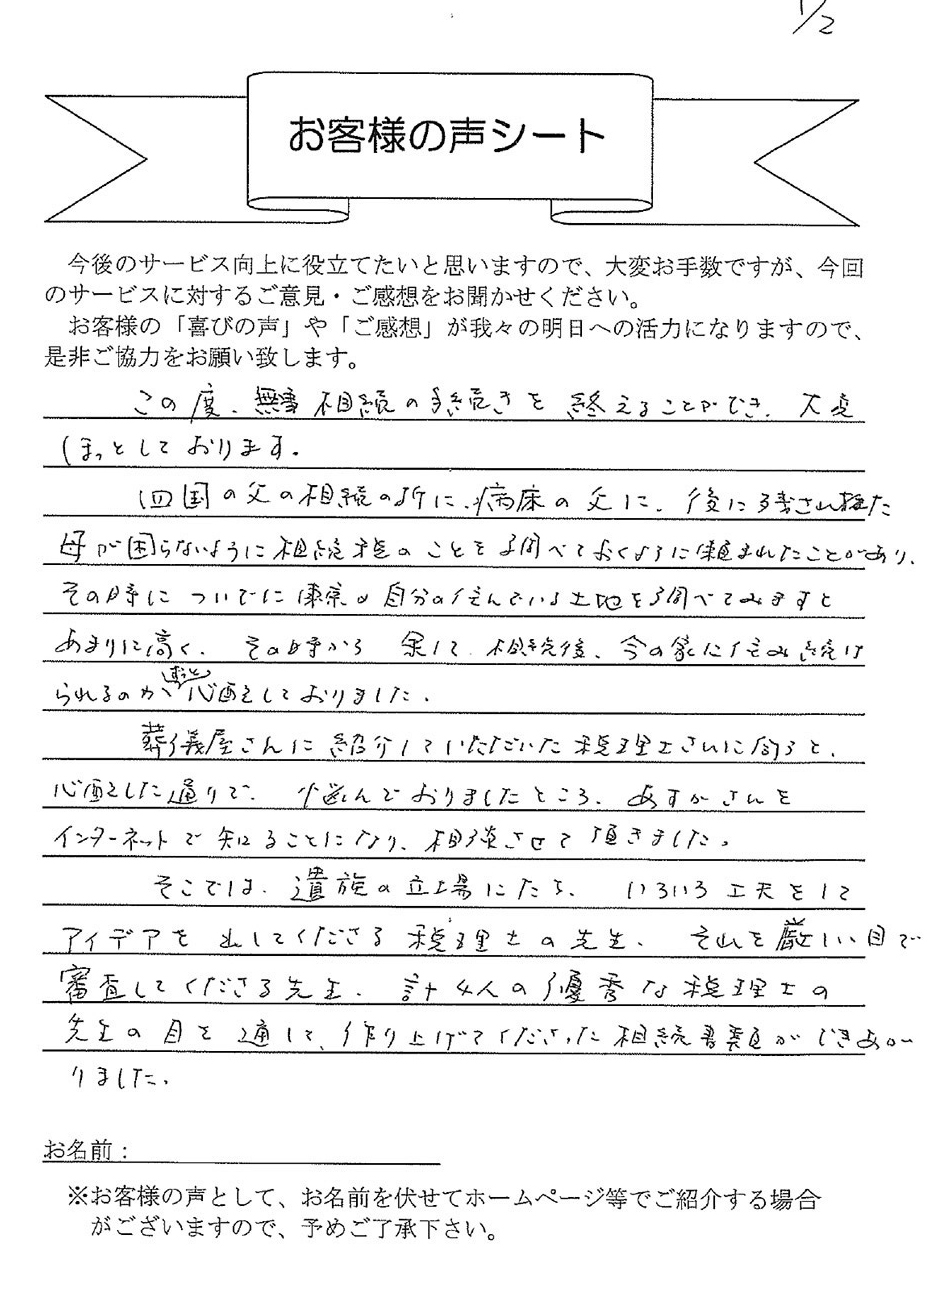 1/2
お客様の声シート
今後のサービス向上に役立てたいと思いますので、大変お手数ですが、今回
のサービスに対するご意見・ご感想をお聞かせください。
お客様の「喜びの声」や「ご感想」が我々の明日への活力になりますので、
是非ご協力をお願い致します。
この度、無事相続の手続きを終えることができ、大変
ほっとしております。
四国の父の相続の折に、病床の父に、後に残された
母が困らないように相続税のことを調べておくように頼まれたことがあり、
その時についでに東京の自分の住んでいる土地を調べてみますと
あまりに高く、その時から 果して、相続後、今の家に住み続け
られるのかずっと心配をしておりました。
葬儀屋さんに紹介していただいた税理士さんに伺うと、
心配した通りで、悩んでおりましたところ、あすかさんを
インターネットで知ることになり、相談させて頂きました。
そこでは、遺族の立場にたち、いろいろ工夫をして
アイデアを出してくださる税理士の先生、それを厳しい目で
審査してくださる先生、計4人の優秀な税理士の
先生の目を通して、作り上げてくださった相続書類ができあが
りました。
お名前：
※お客様の声として、お名前を伏せてホームページ等でご紹介する場合
がございますので、予めご了承下さい。